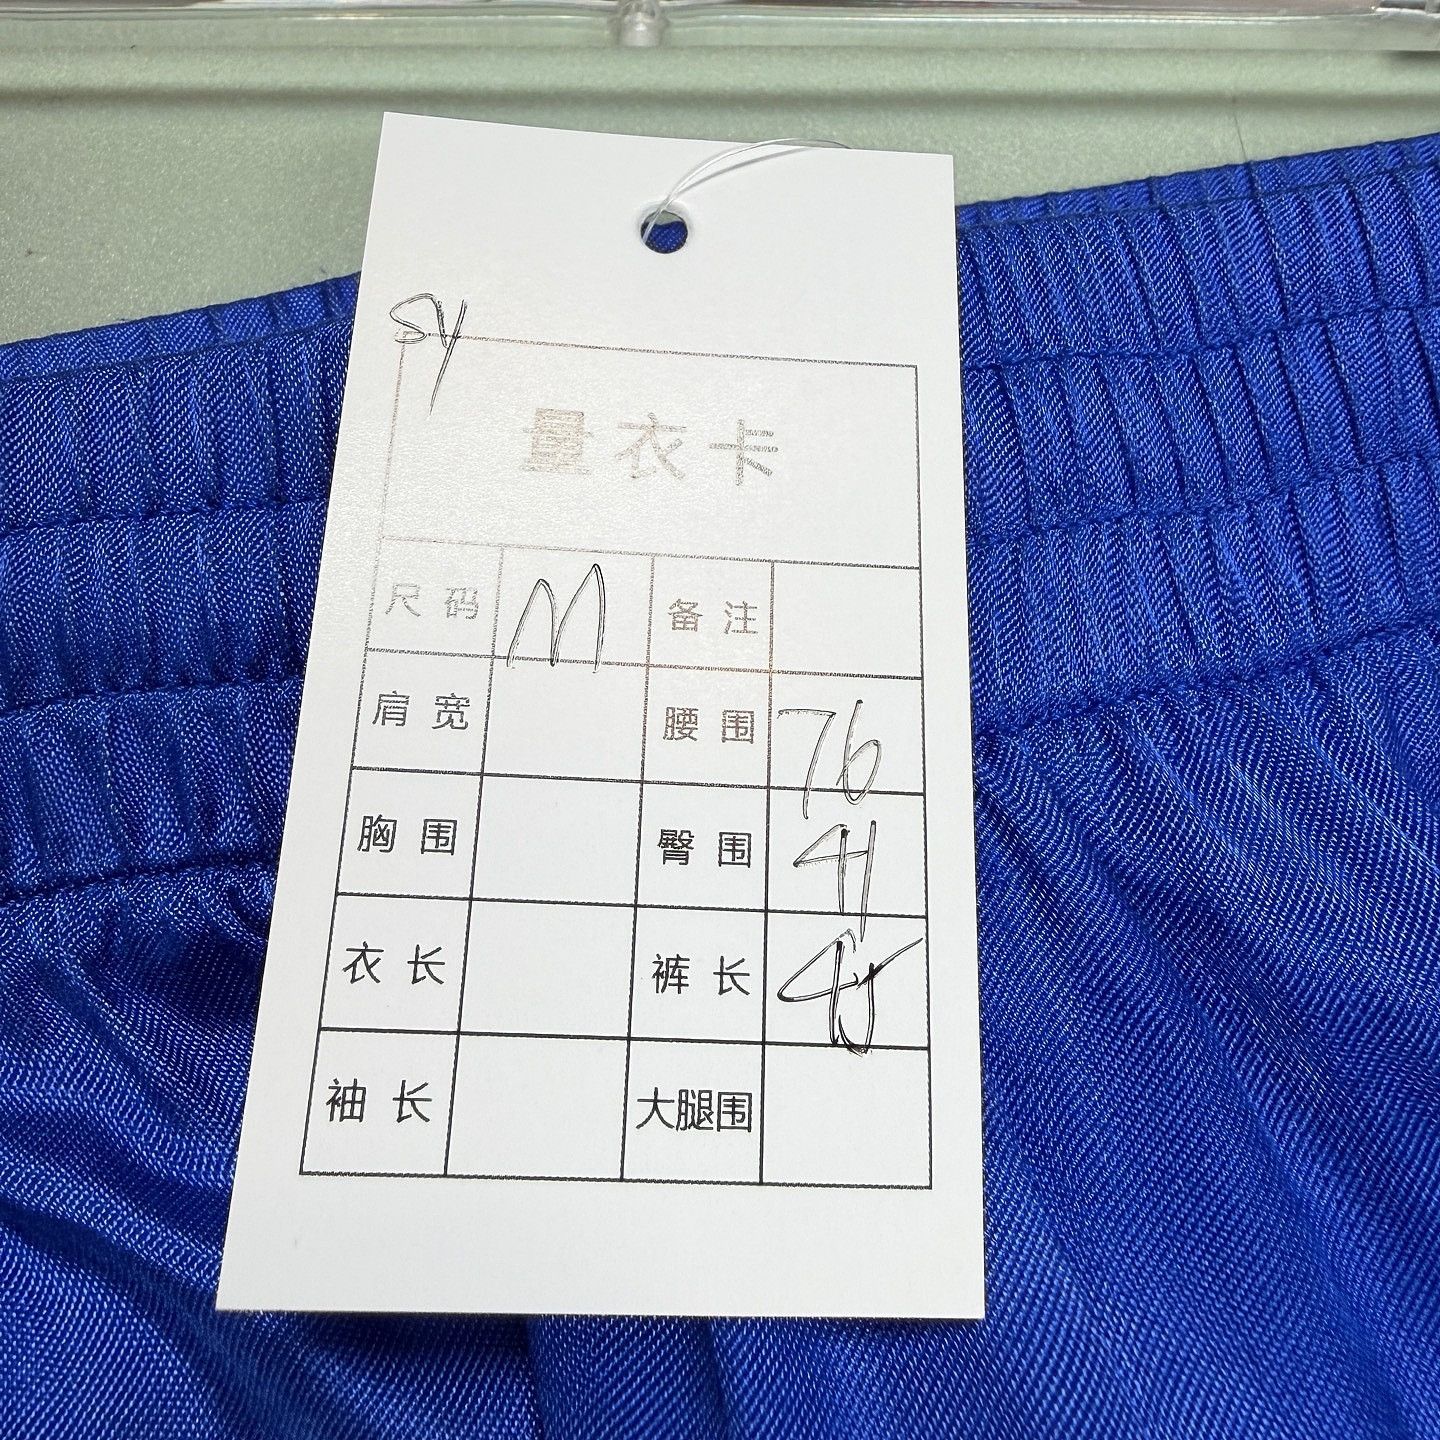 SY
量衣卡
尺码 M 备注
肩宽 腰围 76
胸围 臀围 41
衣长 裤长 45
袖长 大腿围